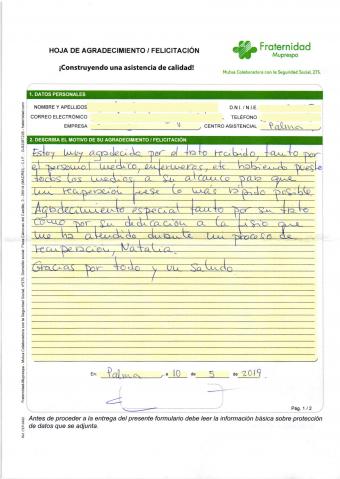 HOJA DE AGRADECIMIENTO / FELICITACIÓN
¡Construyendo una asistencia de calidad!
Fraternidad
Muprespa
Mutua Colaboradora con la Seguridad Social, 275
1. DATOS PERSONALES
NOMBRE Y APELLIDOS
D.N.I. / N.I.E.
CORREO ELECTRÓNICO
TELÉFONO
EMPRESA
CENTRO ASISTENCIAL Palma
2. DESCRIBA EL MOTIVO DE SU AGRADECIMIENTO / FELICITACIÓN
Estoy muy agradecida por el trato recibido, tanto por
el personal médico, enfermeros, etc habiendo puesto
todos los medios a su alcance para que
mi recuperación fuese lo más rápido posible
Agradecimiento especial tanto por su trato
como por su dedicación a la fisio que
me ha atendido durante mi proceso de
recuperación, Natalia.
Gracias por todo y un saludo
En Palma, a 10 de 5 de 2019.
Pág. 1 / 2
Antes de proceder a la entrega del presente formulario debe leer la información básica sobre protección
de datos que se adjunta.